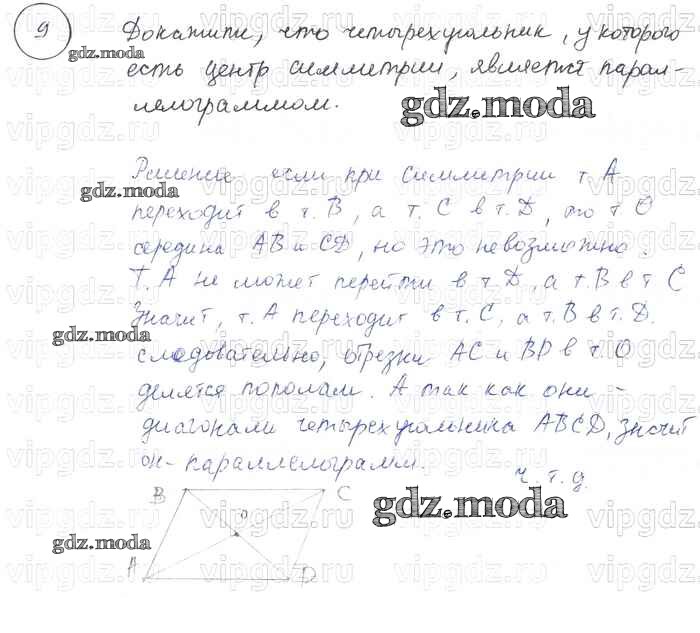 9
Докажите, что четырехугольник, у которого
есть центр симметрии, является парал-
лелограммом.
gdz.moda
gdz.moda
Решение, если при симметрии т. А
gdz.moda
переходит в т. В, а т. С в т. D, то т О
середина АВ и CD, но это невозможно.
Т. А не может перейти в т. D, а т. В в т С
Значит, т. А переходит в т. С, а т. В в т. D.
gdz.moda
следовательно, отрезки АС и BD в т. О
делятся пополам. А так как они -
диагонали четырехугольника ABCD, значит
он - параллелограмм.
ч. т. д.
B C
gdz.moda
O
gdz.moda
A D